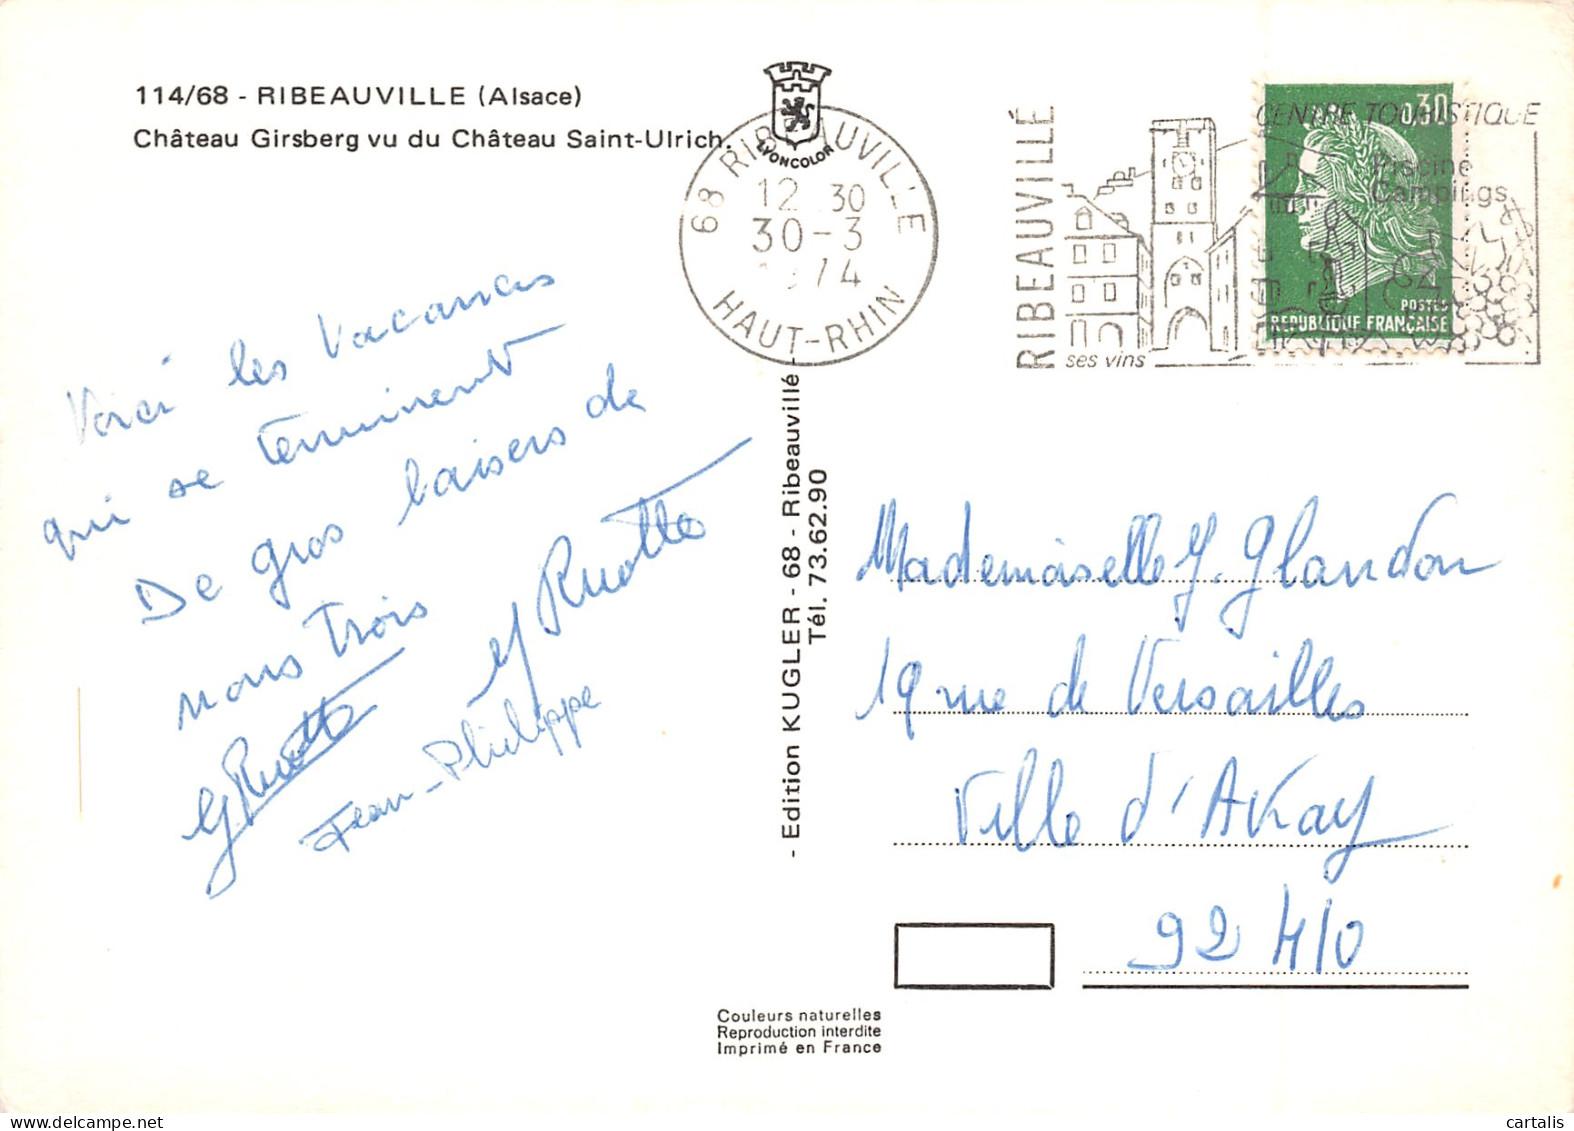 114/68 - RIBEAUVILLE (Alsace)
Château Girsberg vu du Château Saint-Ulrich.
LYONCOLOR
68 RIBEAUVILLE
12 30
30-3
1974
HAUT-RHIN
RIBEAUVILLÉ
ses vins
CENTRE TOURISTIQUE
Piscine
Campings
0,30
POSTES
REPUBLIQUE FRANÇAISE
Voici les vacances
qui se terminent
De gros baisers de
nous trois
Ruotte
Ruotte
Jean-Philippe
- Edition KUGLER - 68 - Ribeauvillé -
Tél. 73.62.90
Mademoiselle Y. Glandon
19 rue de Versailles
Ville d'Avray
92 410
Couleurs naturelles
Reproduction interdite
Imprimé en France
cartalis